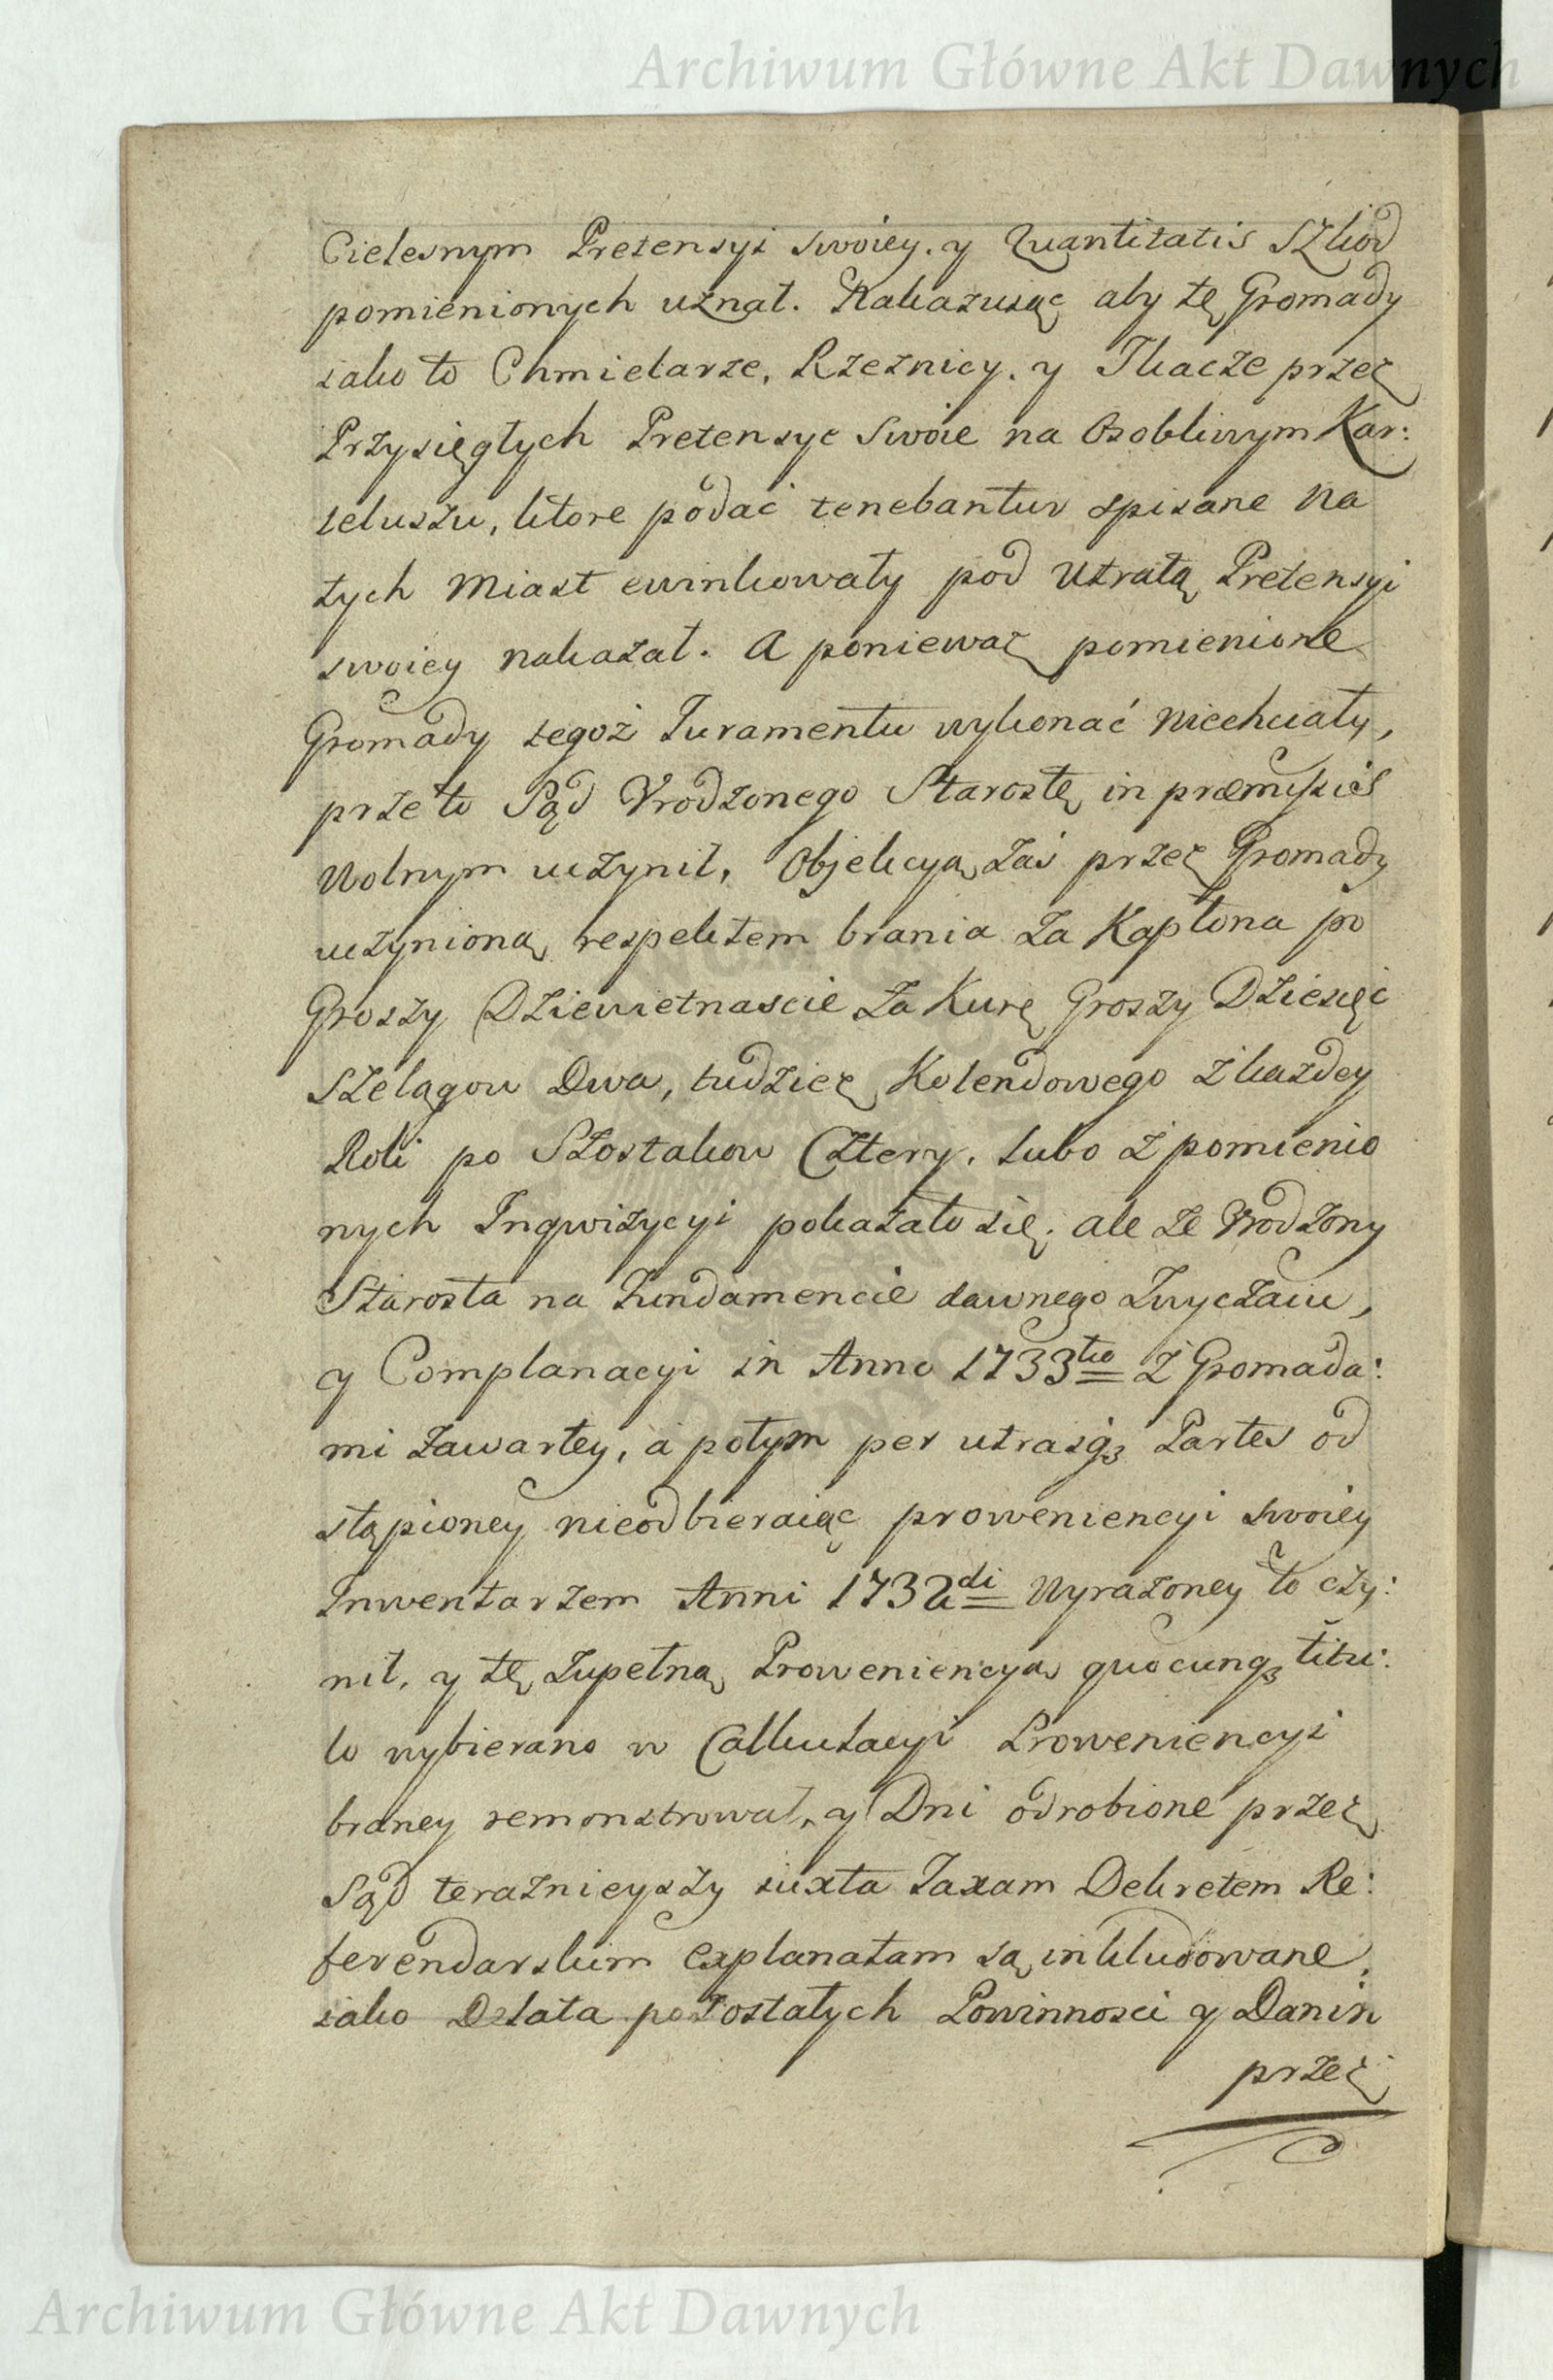 Archiwum Główne Akt Dawnych
Cielesnym Pretensyi swoiey. y Quantitatis Szkod
pomienionych uznał. Nakazuiąc aby tę Gromady
iako to Chmielarze, Rzeznicy. y Tkacze przez
Przysięgłych Pretensye swoie na Osobliwym Kar:
teluszu, ktore podać tenebantur spisane na
tych miast ewinkowały pod Utratą Pretensyi
swoiey nakazał. A poniewaz pomienione
Gromady tegoż Juramentu wykonać niechciały,
przeto Sąd Vrodzonego Starostę in præmissis
Wolnym uczynił, Objekcyą zaś przez Gromady
uczynioną respektem brania za Kapłona po
Groszy Dziewietnascie za Kurę Groszy Dziesięć
Szelągow Dwa, tudziez Kolendowego z każdey
Roli po Szostakow Cztery. lubo z pomienio
nych Inqwizycyi pokazało się. ale ze Vrodzony
Starosta na Fundamencie dawnego Zwyczaiu,
y Complanacyi in Anno 1733tio z Gromada:
mi zawartey, a potym per utrasq3 Partes od
stąpioney nieodbieraiąc proweniencyi swoiey
Inwentarzem Anni 1732di Wyrazoney to czy:
nił, y tę zupełną Proweniencyą quocunq3 titu:
lo wybierano w Calkulacyi Proweniencyi
braney remonstrował, y Dni odrobione przez
Sąd teraznieyszy iuxta Taxam Dekretem Re:
ferendarskim explanatam są inkludowane,
iako Delata pozostałych Powinnosci y Danin
przez
Archiwum Główne Akt Dawnych